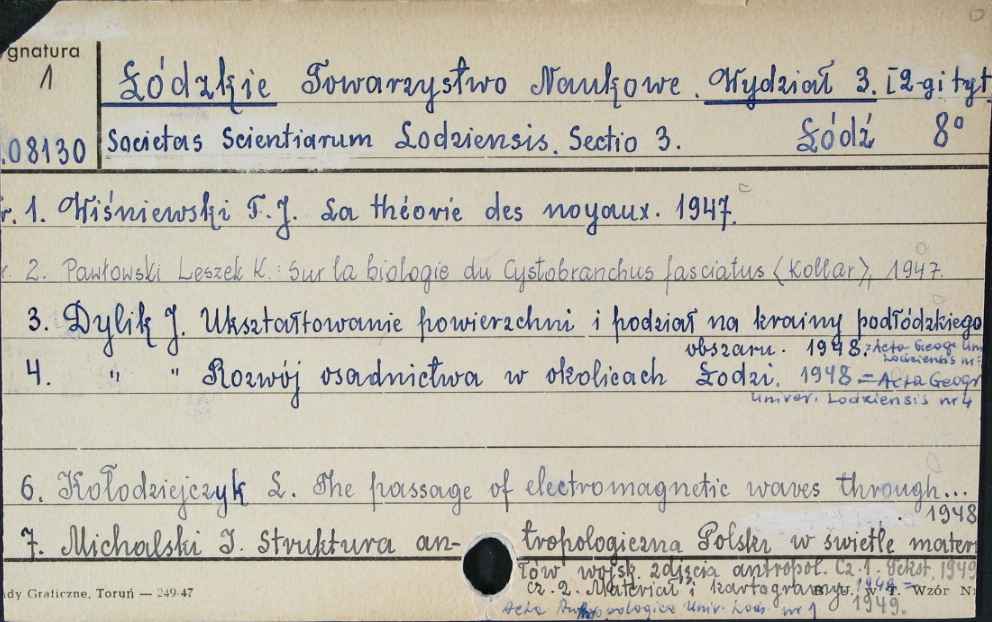 gnatura
1
Łódzkie Towarzystwo Naukowe. Wydział 3. [2-gi tyt
.08130 Societas Scientiarum Lodziensis. Sectio 3. Łódź 8°
r. 1. Wiśniewski F. J. La théorie des noyaux. 1947.
2. Pawłowski Leszek K.: Sur la biologie du Cystobranchus fasciatus (Kollar), 1947.
3. Dylik J. Ukształtowanie powierzchni i podział na krainy podłódzkiego
obszaru. 1948. = Acta Geogr. Un
Lodziensis nr
4. " " Rozwój osadnictwa w okolicach Łodzi. 1948 = Acta Geogr
Univer. Lodziensis nr 4
6. Kołodziejczyk L. The passage of electromagnetic waves through...
1948
7. Michalski I. Struktura an- tropologiczna Polski w świetle mater
łów wojsk. zdjęcia antropol. Cz. 1. Tekst. 1949
cz. 2. Materiał i kartogramy 1949.
ady Graficzne, Toruń — 249-47 B. U. w T. Wzór N
Acta Univ. Lodz. nr 1